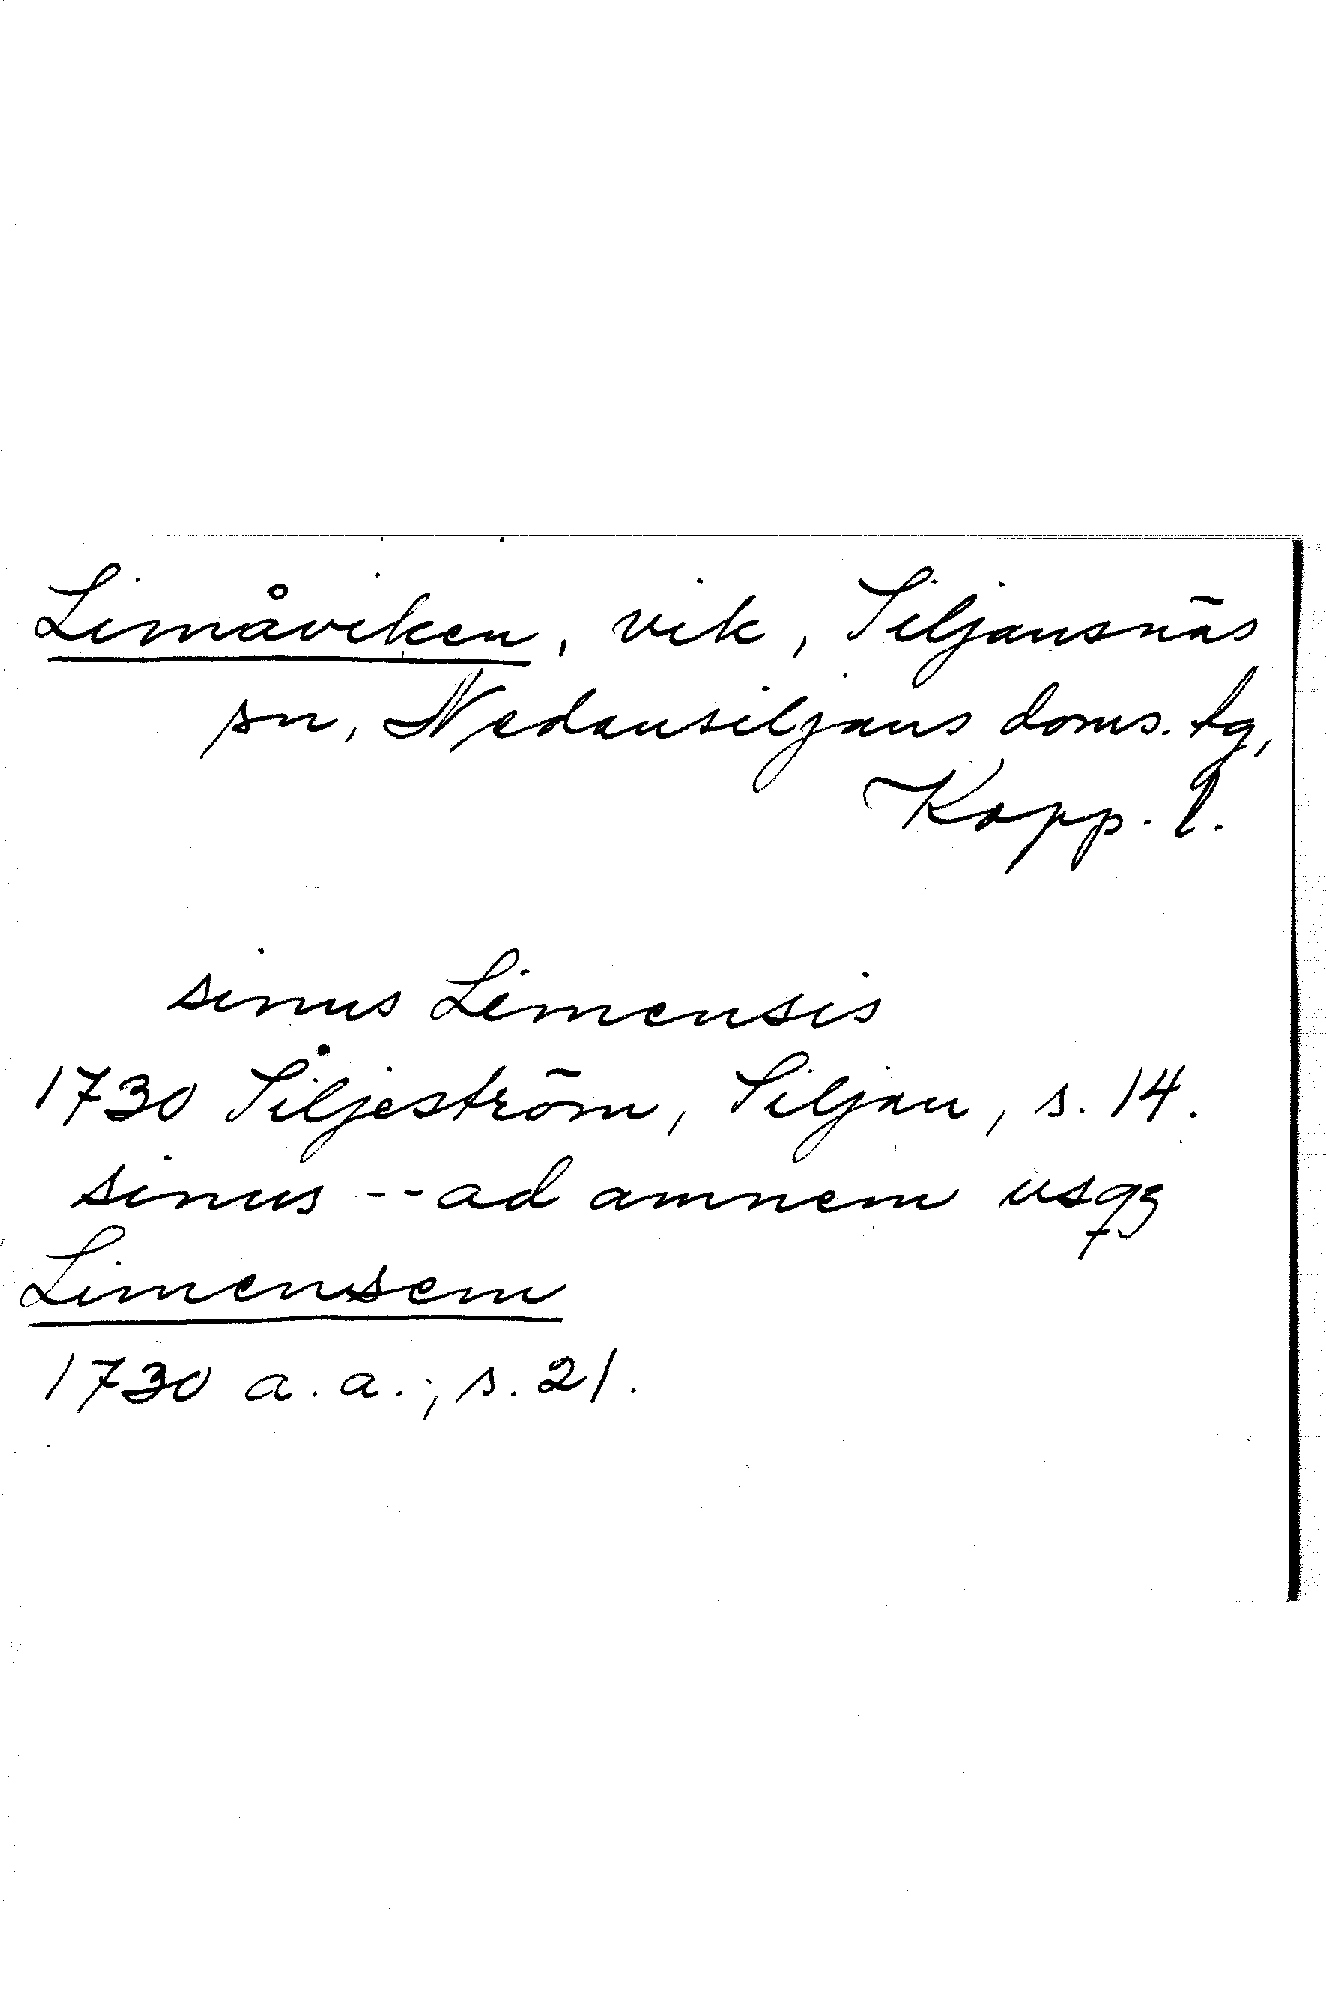 Limåviken, vik, Siljansnäs
sn, Nedansiljans doms. tg,
Kopp. l.
sinus Limensis
1730 Siljeström, Siljan, s. 14.
sinus -- ad amnem usqꝫ
Limensem
1730 a. a., s. 21.